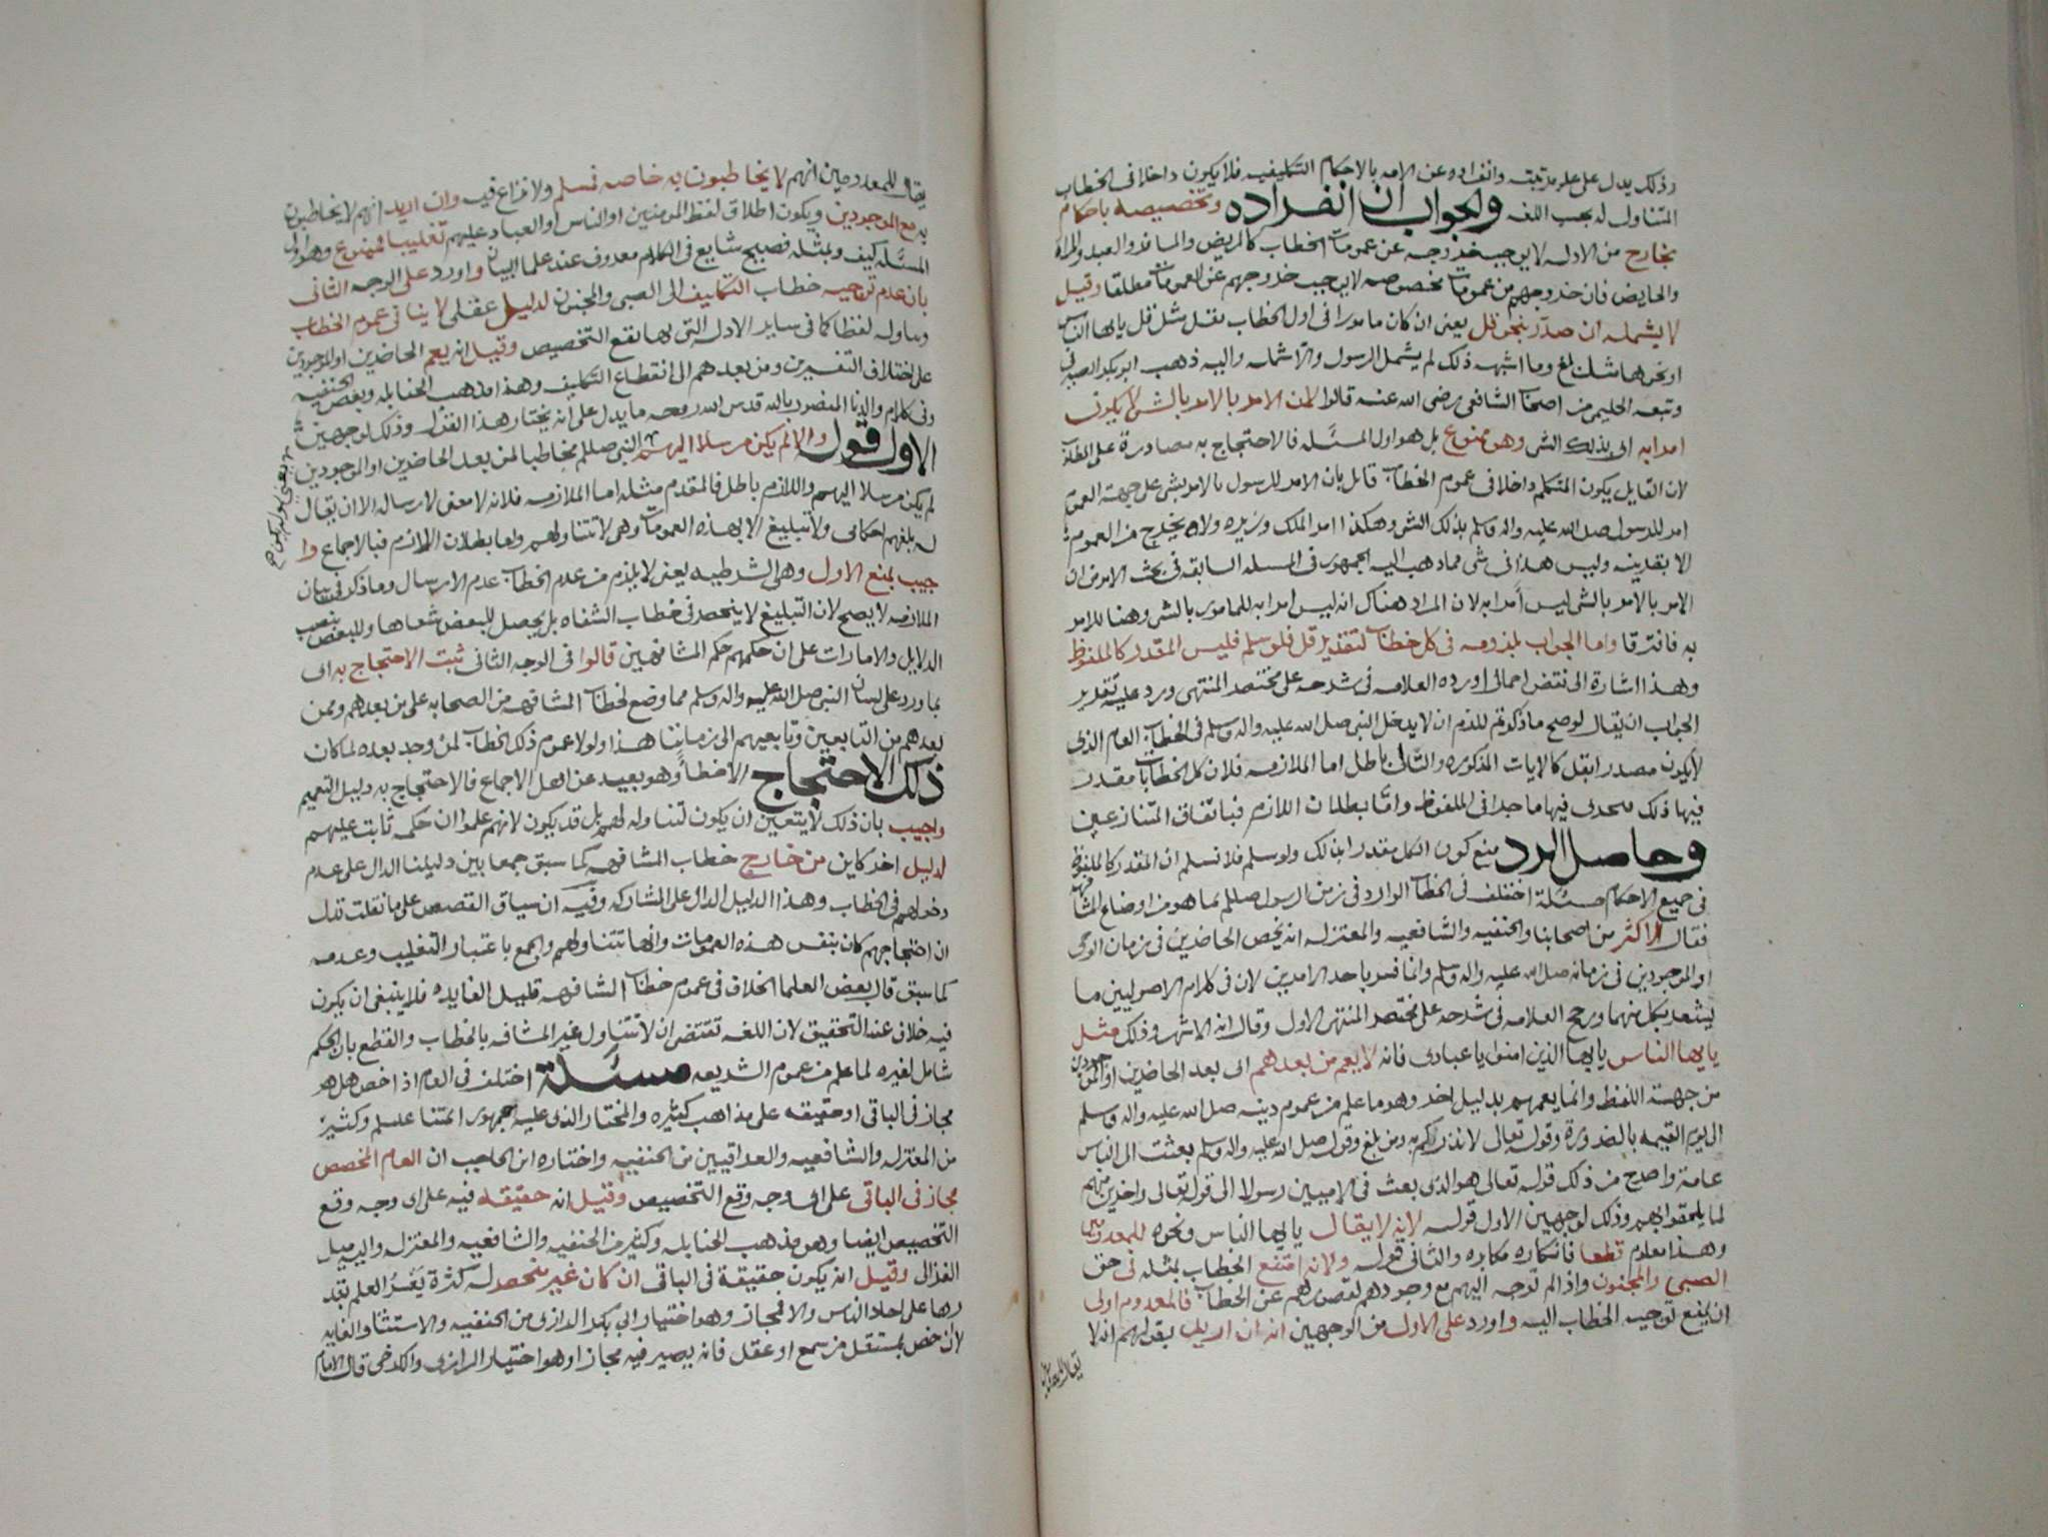 وذلك يدل على علو مرتبته وانفراده عن الامه بالاحكام التكليفيه فلا يكون داخلا في الخطاب
المتناول له بحسب اللغه والجواب ان انفراده وتخصيصه باحكام
بخارج من الادله لا يوجب خروجه عن عمومات الخطاب كالمريض والمسافر والعبد والمراه
والحايض فان خروجهم من عمومات مخصوصه لا يوجب خروجهم عن العمومات مطلقا وقيل
لا يشمله ان صدر بنحو قل يعني ان كان مامورا في اول الخطاب بقل مثل قل يايها الناس
او نحوها مثل بلغ وما اشبه ذلك لم يشمل الرسول والا شمله واليه ذهب ابو بكر الصيرفي
وتبعه الحليمي من اصحاب الشافعي رضي الله عنه قالوا لان الامر بالامر بالشي لا يكون
امرا به اي بذلك الشي وهو ممنوع بل هو اول المسئله فالاحتجاج به مصادرة على المطلوب
لان القايل بكون المتكلم داخلا في عموم الخطاب قايل بان الامر للرسول بالامر بشي على جهة العموم
امر للرسول صلى الله عليه واله وسلم بذلك الشي وهكذا امر الملك وزيره ولا يخرج من العموم
الا بقرينه وليس هذا في شي مما ذهب اليه الجمهور في المسله السابقه في بحث الامر من ان
الامر بالامر بالشي ليس امرا به لان المراد هناك انه ليس امرا به للمامور بالشي وهنا للامر
به فافترقا واما الجواب بلزومه في كل خطاب لتقدير قل فلو سلم فليس المقدر كالملفوظ
وهذا اشارة الى نقض اجمالي اورده العلامه في شرحه على مختصر المنتهى ورد عليه تقرير
الجواب ان يقال لو صح ما ذكرتم للزم ان لا يدخل النبي صلى الله عليه واله وسلم في الخطاب العام الذي
لا يكون مصدرا بقل كالايات المذكوره والتالي باطل اما الملازمه فلان كل الخطابات مقدر
فيها ذلك فيها ما جرا في الملفوظ واما بطلان اللازم فباتفاق المتنازعين
وحاصل الرد منع كون الكل مقدرا بذلك ولو سلم فلا نسلم ان المقدر كالملفوظ
في جميع الاحكام مسئلة اختلف في الخطاب الوارد في زمن الرسول صللم بما هو من اوضاع المشافهه
فقال الاكثر من اصحابنا والحنفيه والشافعيه والمعتزله انه يخص الحاضرين في زمان الوحي
او الموجودين في زمانه صلى الله عليه واله وسلم وانما فسر باحد الامرين لان في كلام الاصوليين ما
يشعر بكل منهما ورجح العلامه في شرحه على مختصر المنتهى الاول وقال انه الاشهر وذلك مثل
يايها الناس يايها الذين امنوا يا عبادي فانه لا يعم من بعدهم اي بعد الحاضرين او الموجودين
من جهة اللفظ وانما يعمهم بدليل اخر وهو ما علم من عموم دينه صلى الله عليه واله وسلم
الى يوم القيمه بالضرورة وقوله تعالى لانذركم به ومن بلغ وقوله صلى الله عليه واله وسلم بعثت الى الناس
عامة واصرح من ذلك قوله تعالى هو الذي بعث في الاميين رسولا الى قوله تعالى واخرين منهم
لما يلحقوا بهم وذلك لوجهين الاول قوله لانه لا يقال يايها الناس ونحوه للمعدومين
وهذا معلوم قطعا فانكاره مكابره والثاني قوله ولانه امتنع الخطاب بمثله في حق
الصبي والمجنون واذا لم توجه اليهم مع وجودهم لقصورهم عن الخطاب فالمعدوم اولى
ان يمنع توجيه الخطاب اليه واورد على الاول من الوجهين انه ان اريد بقولهم انه لا
يقال للمعدومين
يقال للمعدومين انهم لا يخاطبون به خاصه فسلم ولا نزاع فيه وان اريد انهم لا يخاطبون
به مع الموجودين ويكون اطلاق لفظ المومنين او الناس او العباد عليهم تغليبا فممنوع وهو اول
المسئله كيف ومثله فصيح شايع في الكلام معروف عند علما البيان واورد على الوجه الثاني
بان عدم توجيه خطاب التكليف الى الصبي والمجنون لدليل عقلي لا ينافي عموم الخطاب
وتناوله لفظا كما في ساير الادله التي بها يقع التخصيص وقيل انه يعم الحاضرين او الموجودين
على اختلاف التفسيرين ومن بعدهم الى انقطاع التكليف وهذا مذهب الحنابله وبعض الحنفيه
وفي كلام والدنا المنصور بالله قدس الله روحه ما يدل على انه يختار هذا القول وذلك لوجهين
الاول قوله والا لم يكن مرسلا اليهم النبي صللم مخاطبا لمن بعد الحاضرين او الموجودين
لم يكن مرسلا اليهم واللازم باطل فالمقدم مثله اما الملازمه فلانه لا معنى لارساله الا ان يقال
له بلغهم احكامي ولا تبليغ الا بهذه العمومات وهي لا تتناولهم واما بطلان اللازم فبالاجماع وا
جيب بمنع الاول وهي الشرطيه يعني لا يلزم من عدم الخطاب عدم الارسال وما ذكر في بيان
الملازمه لا يصح لان التبليغ لا ينحصر في خطاب الشفاه بل يحصل للبعض شفاها وللبعض بنصب
الدلايل والامارات على ان حكمهم حكم المشافهين قالوا في الوجه الثاني ثبت الاحتجاج به اي
بما ورد على لسان النبي صلى الله عليه واله وسلم مما وضع لخطاب المشافهه من الصحابه على من بعدهم وممن
بعدهم من التابعين وتابعيهم الى زماننا هذا ولولا عموم ذلك الخطاب لمن وجد بعده لما كان
ذلك الاحتجاج الا خطأ وهو بعيد عن اهل الاجماع فالاحتجاج به دليل التعميم
واجيب بان ذلك لا يتعين ان يكون لتناوله لهم بل قد يكون لانهم علموا ان حكمه ثابت عليهم
لدليل اخر كاين من خارج خطاب المشافهه كما سبق جمعا بين دليلنا الدال على عدم
دخولهم في الخطاب وهذا الدليل الدال على المشاركه وفيه ان سياق القصص على ما نقلت تدل
ان احتجاجهم كان بنفس هذه العمومات وانها تتناولهم والجمع باعتبار التغليب وعدمه
كما سبق قال بعض العلما الخلاف في عموم خطاب المشافهه قليل الفايده فلا ينبغي ان يكون
فيه خلاف عند التحقيق لان اللغه تقتضي ان لا تتناول غير المشافه بالخطاب والقطع بان الحكم
شامل لغيره لما علم من عموم الشريعه مسئلة اختلف في العام اذا خص هل هو
مجاز في الباقي او حقيقه على مذاهب كثيره والمختار الذي عليه جمهور ائمتنا علسلم وكثير
من المعتزله والشافعيه والعراقيين من الحنفيه واختاره ابن الحاجب ان العام المخصص
مجاز في الباقي على اي وجه وقع التخصيص وقيل انه حقيقه فيه على اي وجه وقع
التخصيص ايضا وهو مذهب الحنابله وكثير من الحنفيه والشافعيه والمعتزله واليه ميل
الغزالي وقيل انه يكون حقيقة في الباقي ان كان غير منحصر له كثرة يعسر العلم بقد
رها على احاد الناس والا فمجاز وهو اختيار ابي بكر الرازي من الحنفيه والاستثنا والغايه
لا ان خص بمستقل من سمع او عقل فانه يصير فيه مجازا وهو اختيار الرازي والكرخي قال الامام